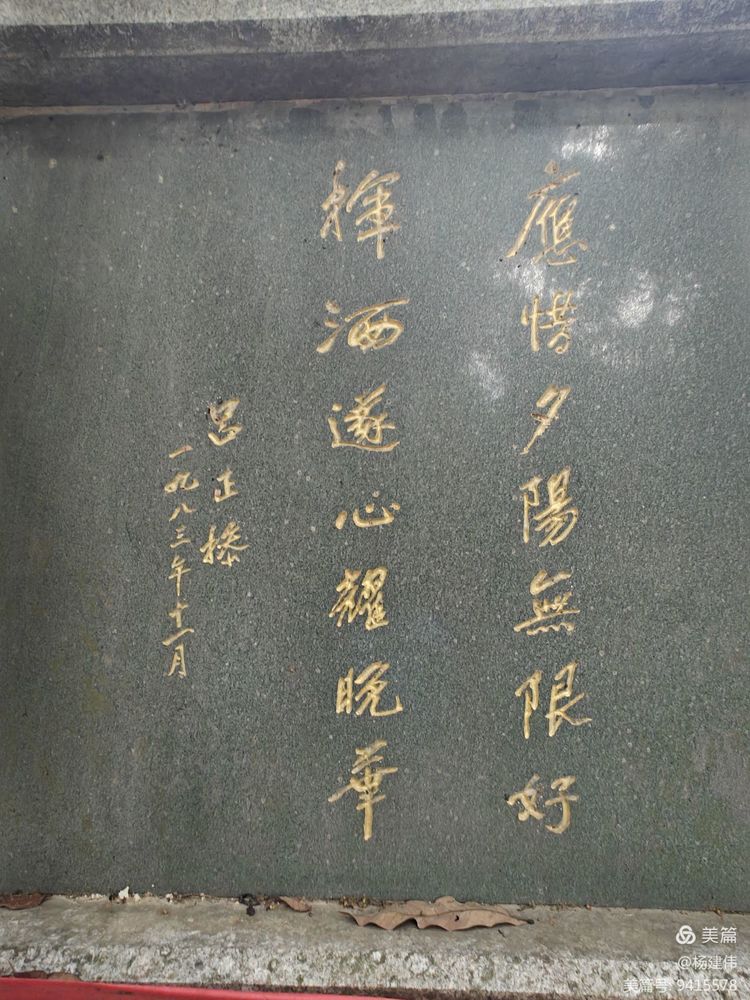 應惜夕陽無限好
揮洒遂心耀晚華
呂正操
一九八三年十一月
美篇
@杨建伟
美篇号 9415578